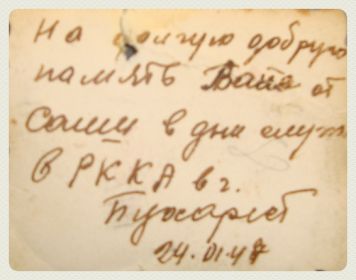 На долгую добрую
память Ване от
Саши в дни служ
в РККА в г.
Бухарест
24.01.47